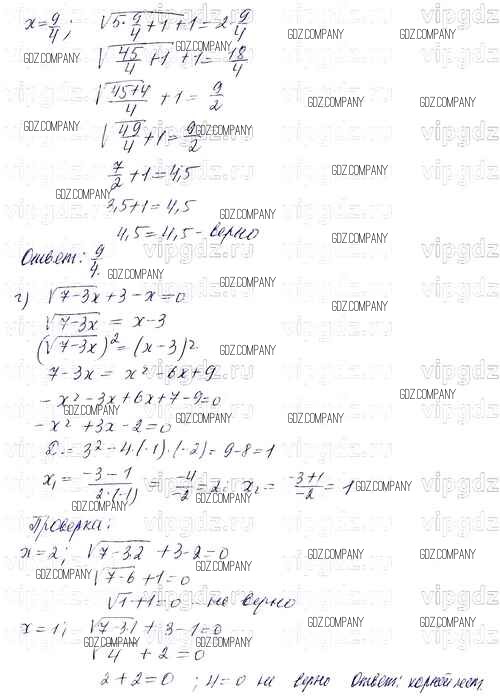 x=9/4; √(5·9/4+1)+1=2·9/4
√(45/4+1)+1=18/4
√((45+4)/4)+1=9/2
√(49/4)+1=9/2
7/2+1=4,5
3,5+1=4,5
4,5=4,5 - верно
Ответ: 9/4.
г) √(7-3x)+3-x=0
√(7-3x) = x-3
(√(7-3x))²=(x-3)²
7-3x = x²-6x+9
-x²-3x+6x+7-9=0
-x²+3x-2=0
D=3²-4·(-1)·(-2)=9-8=1
x₁=(-3-1)/(2·(-1)) = -4/-2=2; x₂=(-3+1)/-2=1
Проверка:
x=2; √(7-3·2)+3-2=0
√(7-6)+1=0
√1+1=0 - не верно
x=1; √(7-3·1)+3-1=0
√4+2=0
2+2=0; 4=0 не верно Ответ: корней нет
GDZ.COMPANY
vipgdz.ru